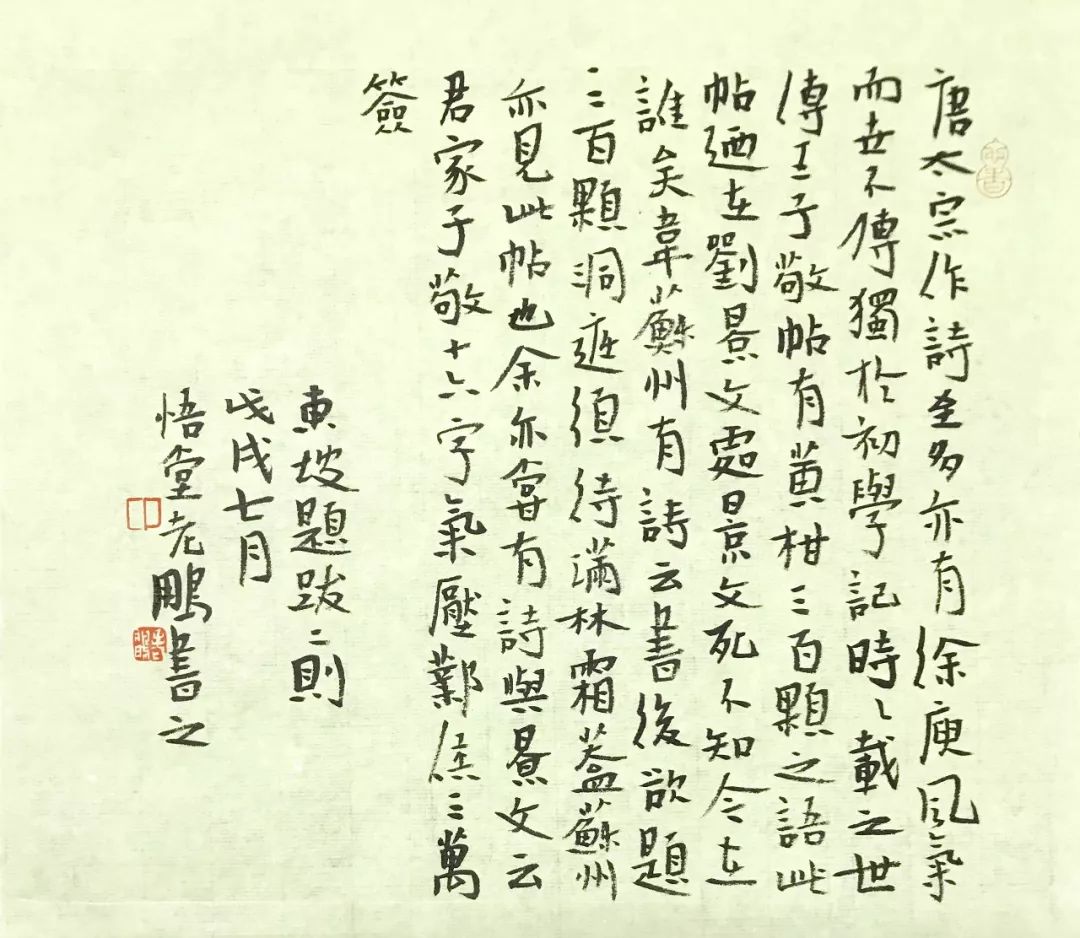 唐太宗作詩至多亦有徐庾風氣
而世不傳獨於初學記時〻載之世
傳王子敬帖有黄柑三百顆之語此
帖迺在劉景文處景文死不知今在
誰矣韋蘇州有詩云書後欲題
三百顆洞庭須待滿林霜蓋蘇州
亦見此帖也余亦嘗有詩與景文云
君家子敬十六字氣壓鄴侯三萬
簽
東坡題跋二則
戊戌七月
悟堂老鵬書之